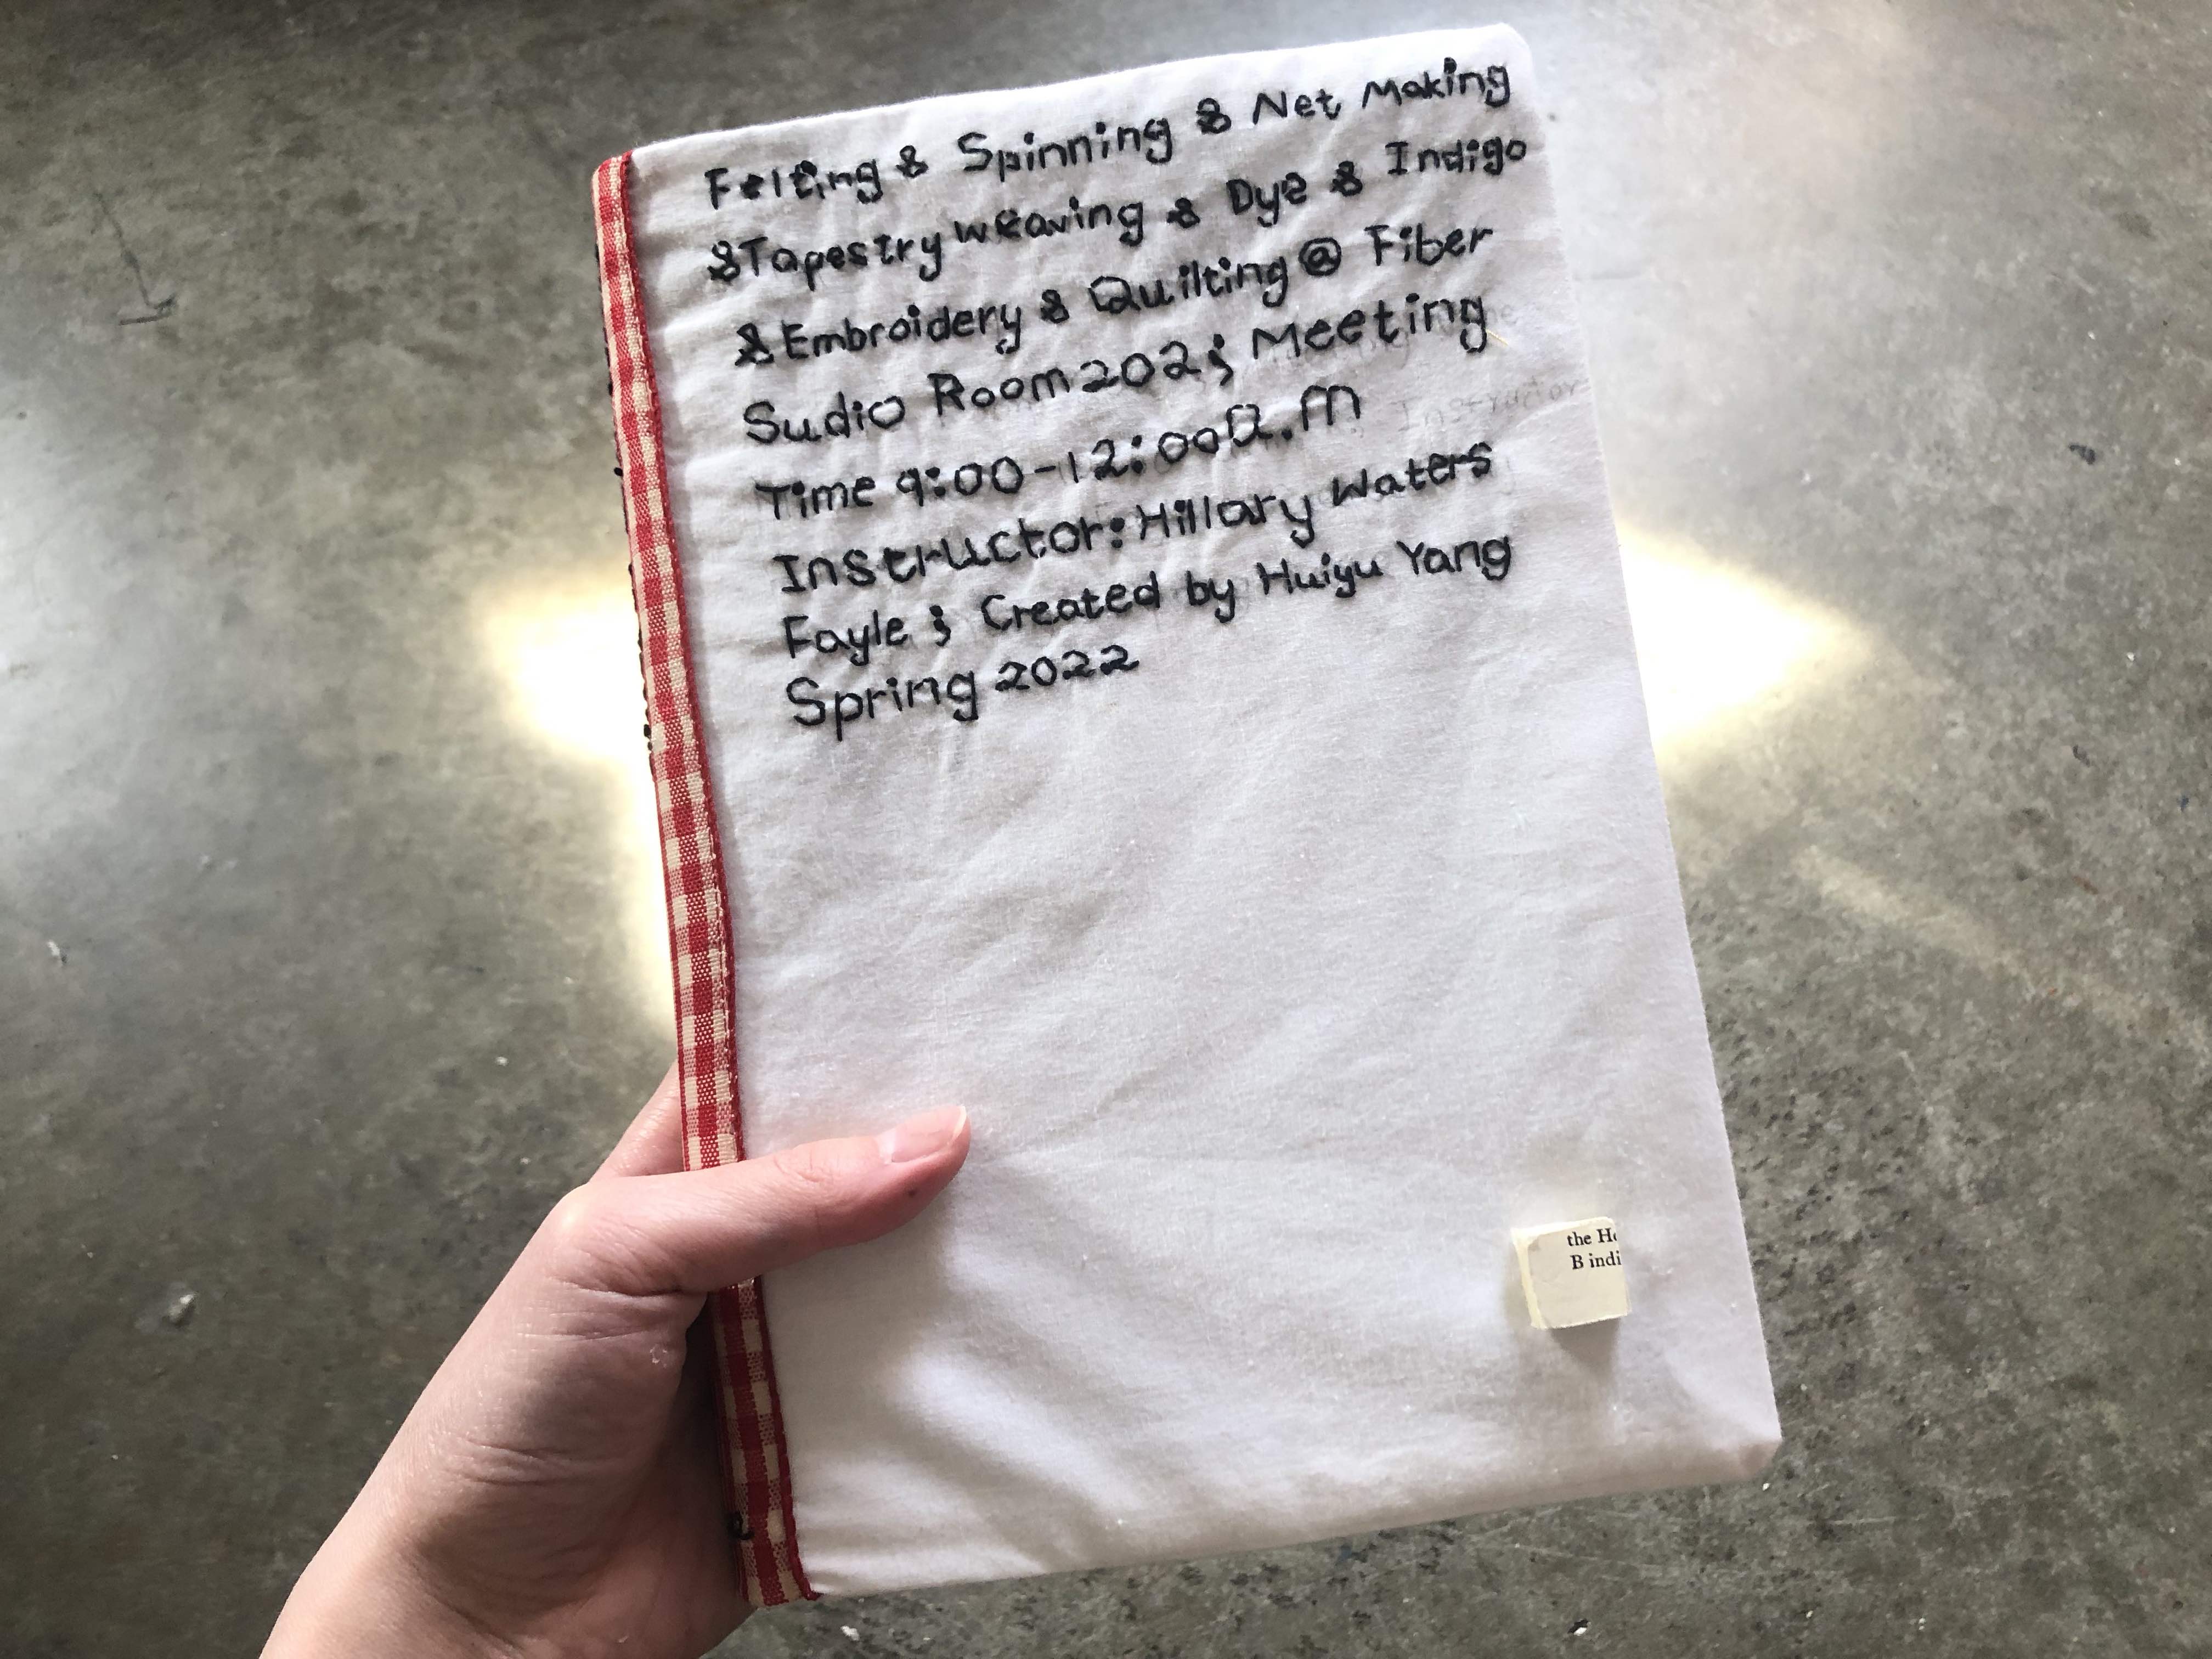 Felting & Spinning & Net Making
&Tapestry weaving & Dye & Indigo
& Embroidery & Quilting @ Fiber
Sudio Room 202; Meeting
Time 9:00-12:00a.m
Instructor: Hillary Waters
Fayle; Created by Huiyu Yang
Spring 2022
Instructor
the Ho
B indi